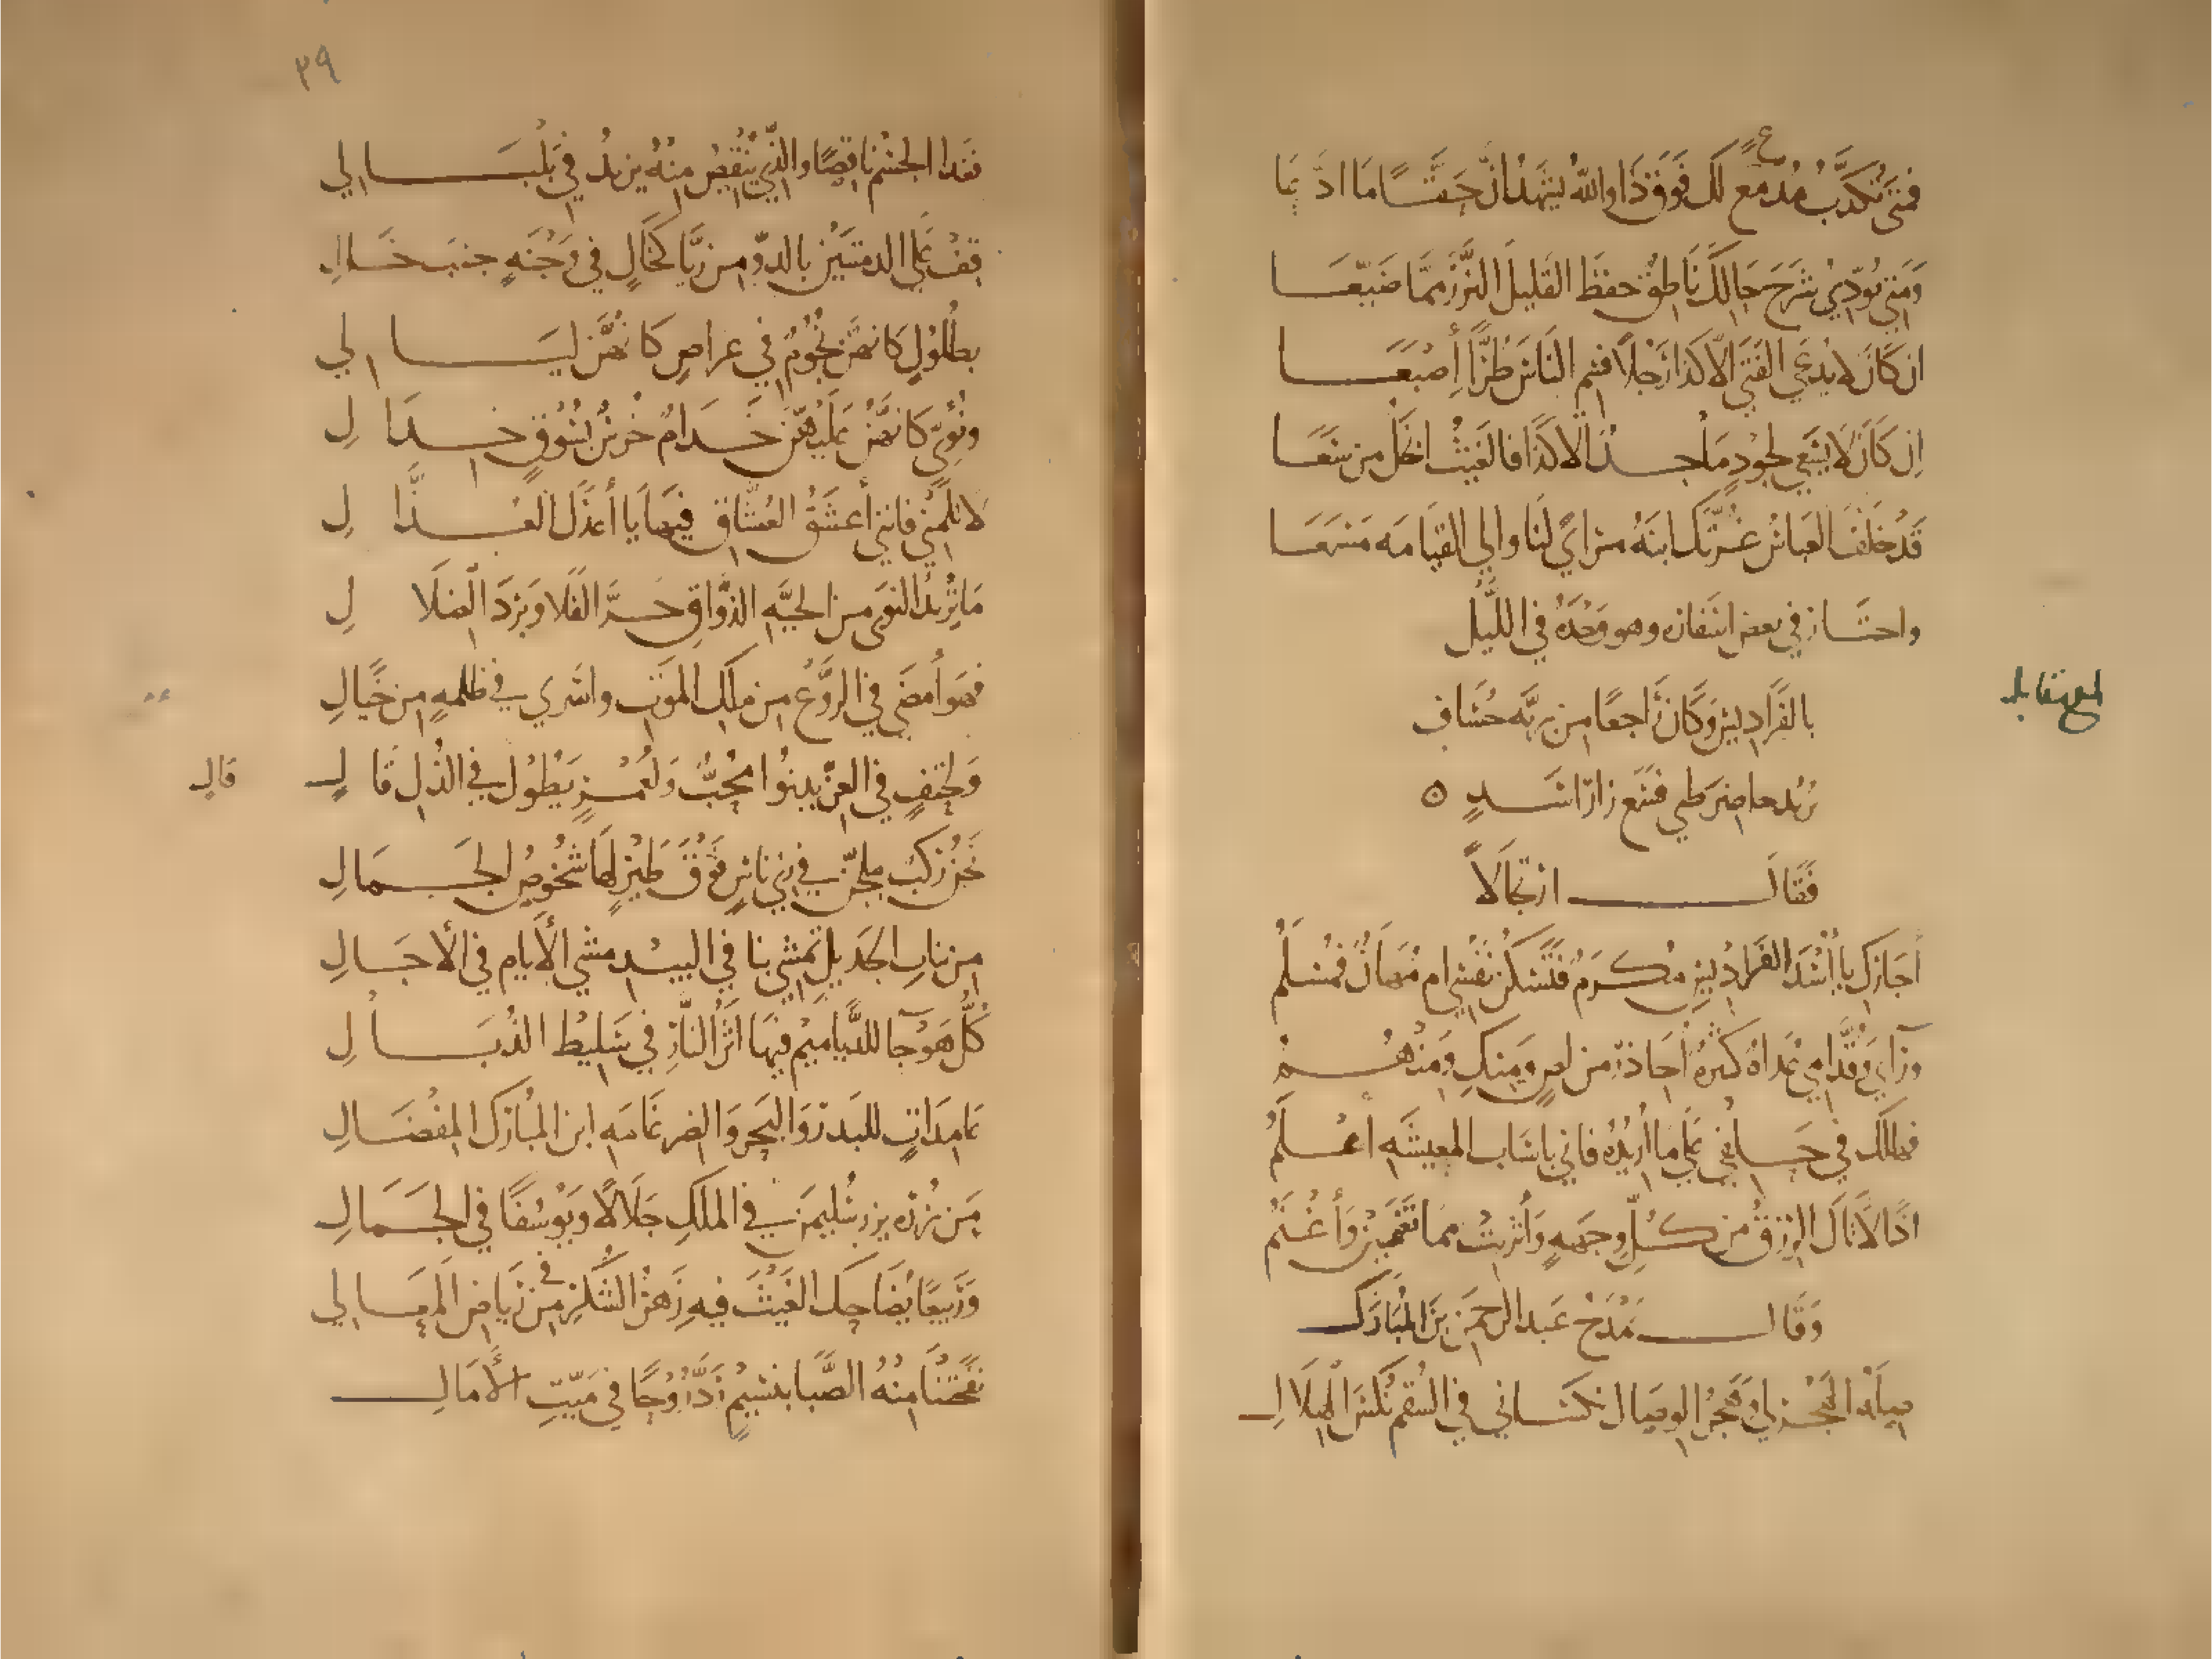 فمتى يكذب مدع لك فوق ذا والله يشهد ان حقا ما ادعا
ومتى يؤدي شرح حالك ناطق حفظ القليل النزر مما ضيعا
ان كان لا يدعى الفتى الا كذا رجلا فسم الناس طرا أصبعا
ان كان لا يسعى لجود ماجد الا كذا فالغيث ابخل من سعا
قد خلف العباس غرتك ابنه مراى لنا والى القيامه مسمعا
واجتاز في بعض اسفاره وهو وحده في الليل
بالفراديس وكان راجعا من بريه خساف
يريد حاضر طي فسمع زار اسد
فقال ارتجالا
أجارك يا أسد الفراديس مكرم فتسكن نفسي ام مهان فمسلم
ورآي وقدامي عداة كثيرة أحاذر من لص ومنك ومنهم
فهل لك في حلفي على ما أريده فاني باسباب المعيشه أعلم
اذا لاتاك الرزق من كل وجهه وأثريت مما تغنمين وأغنم
وقال يمدح عبد الرحمن بن المبارك
صلة الهجر لي وهجر الوصال نكساني في السقم نكس الهلال
٣٩
فغدا الجسم ناقصا والذي ينقص منه يزيد في بلبالي
قف على الدمنتين بالدو من ريا كخال في وجنه جنب خال
بطلول كانهن نجوم في عراص كانهن ليالي
ونؤي كانهن عليهن خدام خرس بسوق خدال
لا تلمني فانني أعشق العشاق فيها يا أعذل العذال
ما تريد النوى من الحيه الذواق حر الفلا وبرد الضلال
فهو أمضى في الروع من ملك الموت واسرى في ظلمه من خيال
ولحتف في العز يدنوا محب ولعمر يطول في الذل قال
قال
نحن ركب ملجن في زي ناس فوق طير لها شخوص الجمال
من بنات الجديل تمشي بنا في البيد مشي الأيام في الأجال
كل هوجا للدياميم فيها اثر النار في سليط الذبال
عامدات للبدر والبحر والضرغامه ابن المبارك المفضال
من يزره يزر سليمن في الملك جلالا ويوسفا في الجمال
وربيعا يضاحك الغيث فيه زهر الشكر من رياض المعالي
نفحتنا منه الصبا بنسيم رد روحا في ميت الأمال